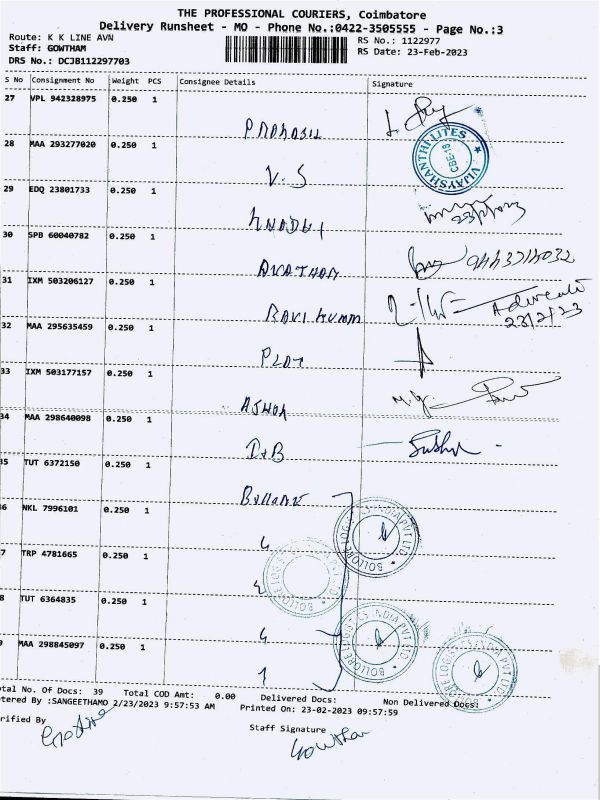 THE PROFESSIONAL COURIERS, Coimbatore
Delivery Runsheet - MO - Phone No.:0422-3505555 - Page No.:3
Route: K K LINE AVN
RS No.: 1122977
Staff: GOWTHAM
RS Date: 23-Feb-2023
DRS No.: DCJB112297703
S No Consignment No Weight PCS Consignee Details Signature
27 VPL 942328975 0.250 1
PRAKASH
28 MAA 293277020 0.250 1
V.S
VIJAYSHANTHI LITES
CBE-18
29 EDQ 23801733 0.250 1
30 SPB 60040782 0.250 1
31 IXM 503206127 0.250 1
RAVI KUMAR
Advocate
23/2/23
32 MAA 295635459 0.250 1
PLOT
33 IXM 503177157 0.250 1
34 MAA 298640098 0.250 1
D+B
35 TUT 6372150 0.250 1
6 NKL 7996101 0.250 1
BOLLORE LOGISTICS INDIA PVT LTD
7 TRP 4781665 0.250 1
8 TUT 6364835 0.250 1
BOLLORE LOGISTICS INDIA PVT LTD
MAA 298845097 0.250 1
otal No. Of Docs: 39 Total COD Amt: 0.00 Delivered Docs: Non Delivered Docs:
tered By :SANGEETHAMO 2/23/2023 9:57:53 AM Printed On: 23-02-2023 09:57:59
rified By
Staff Signature
Gowtham